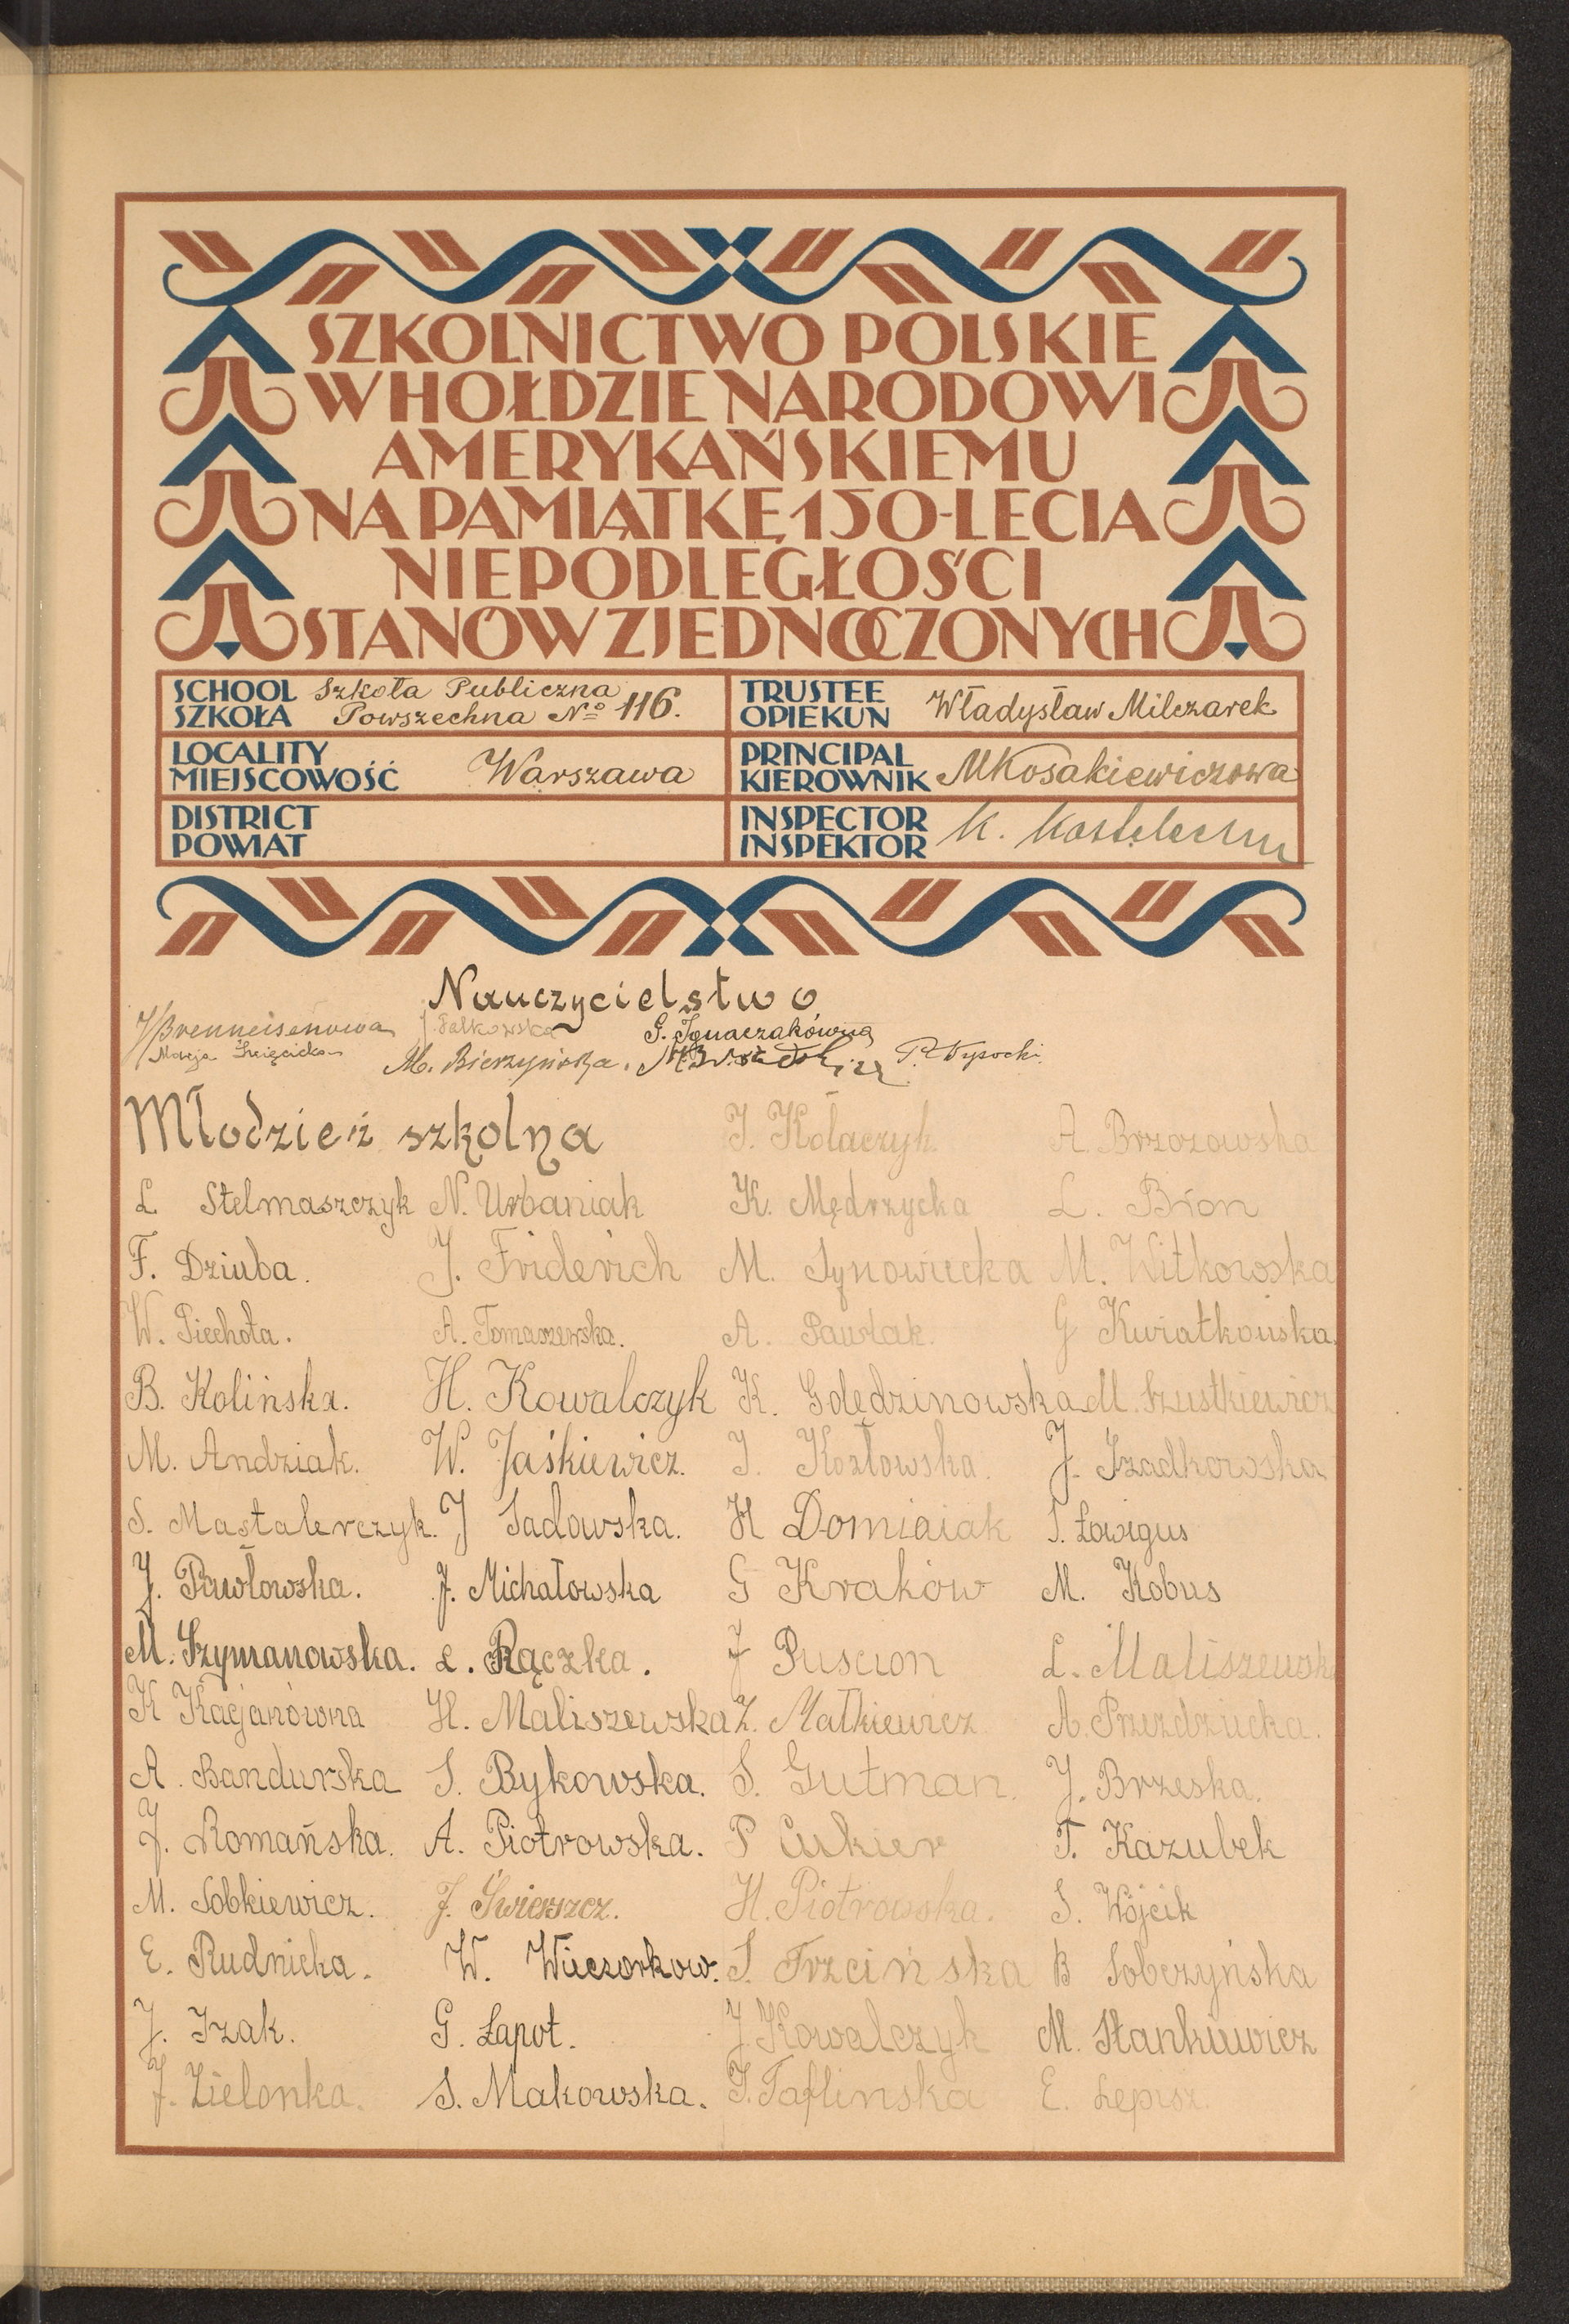 SZKOLNICTWO POLSKIE
W HOŁDZIE NARODOWI
AMERYKAŃSKIEMU
NA PAMIĄTKĘ 150-LECIA
NIEPODLEGŁOŚCI
STANÓW ZJEDNOCZONYCH
SCHOOL SZKOŁA Szkoła Publiczna Powszechna Nº 116.
TRUSTEE OPIEKUN Władysław Milczarek
LOCALITY MIEJSCOWOŚĆ Warszawa
PRINCIPAL KIEROWNIK MKosakiewiczowa
DISTRICT POWIAT
INSPECTOR INSPEKTOR K.
Nauczycielstwo
J. Falkowska G. Ignaczakówna
Marja Święcicka
M. Bierzyńska. P. Wysocki
Młodzież szkolna
I. Kołaczyk A. Brzozowska
L. Stelmaszczyk N. Urbaniak K. Mędrzycka L. Bron
F. Dziuba. J. Friderich M. Synowiecka M. Witkowska
W. Piechota. A. Tomaszewska. A. Pawlak. G Kwiatkowska.
B. Kolińska. H. Kowalczyk K. Golędzinowska M. Szustkiewicz
M. Andziak. W. Jaśkiewicz. I. Kozłowska. J. Szadkowska
S. Mastalerczyk. J Sadowska. H Domiaiak S. Ławigus
J. Pawłowska. J. Michałowska G Kraków M. Kobus
M. Szymanowska. L. Rączka. J Puscion L. Maliszewsk
K Kacjanówna H. Maliszewska Z. Małkiewicz A. Przezdziecka.
A. Bandurska S. Bykowska. S. Gutman. J. Brzeska.
J. Romańska. A. Piotrowska. P Cukier T. Kazubek
M. Sobkiewicz. J. Świerszcz. H. Piotrowska. S. Wójcik
E. Rudnicka. W. Wieczorkow. S. Trzcińska B Sobczyńska
J. Izak. G. Łapot. J. Kowalczyk M. Stankiewicz
J. Zielonka. S. Makowska. I. Taflinska E. Lepisz.